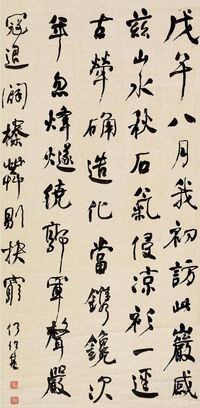 戊午八月我初訪此巖感
茲山水秋石氣侵涼衫一逕
古犖确造化當鐫鑱次
年忽烽燧繞郭軍聲嚴
寇退闢榛莽則抉
何紹基